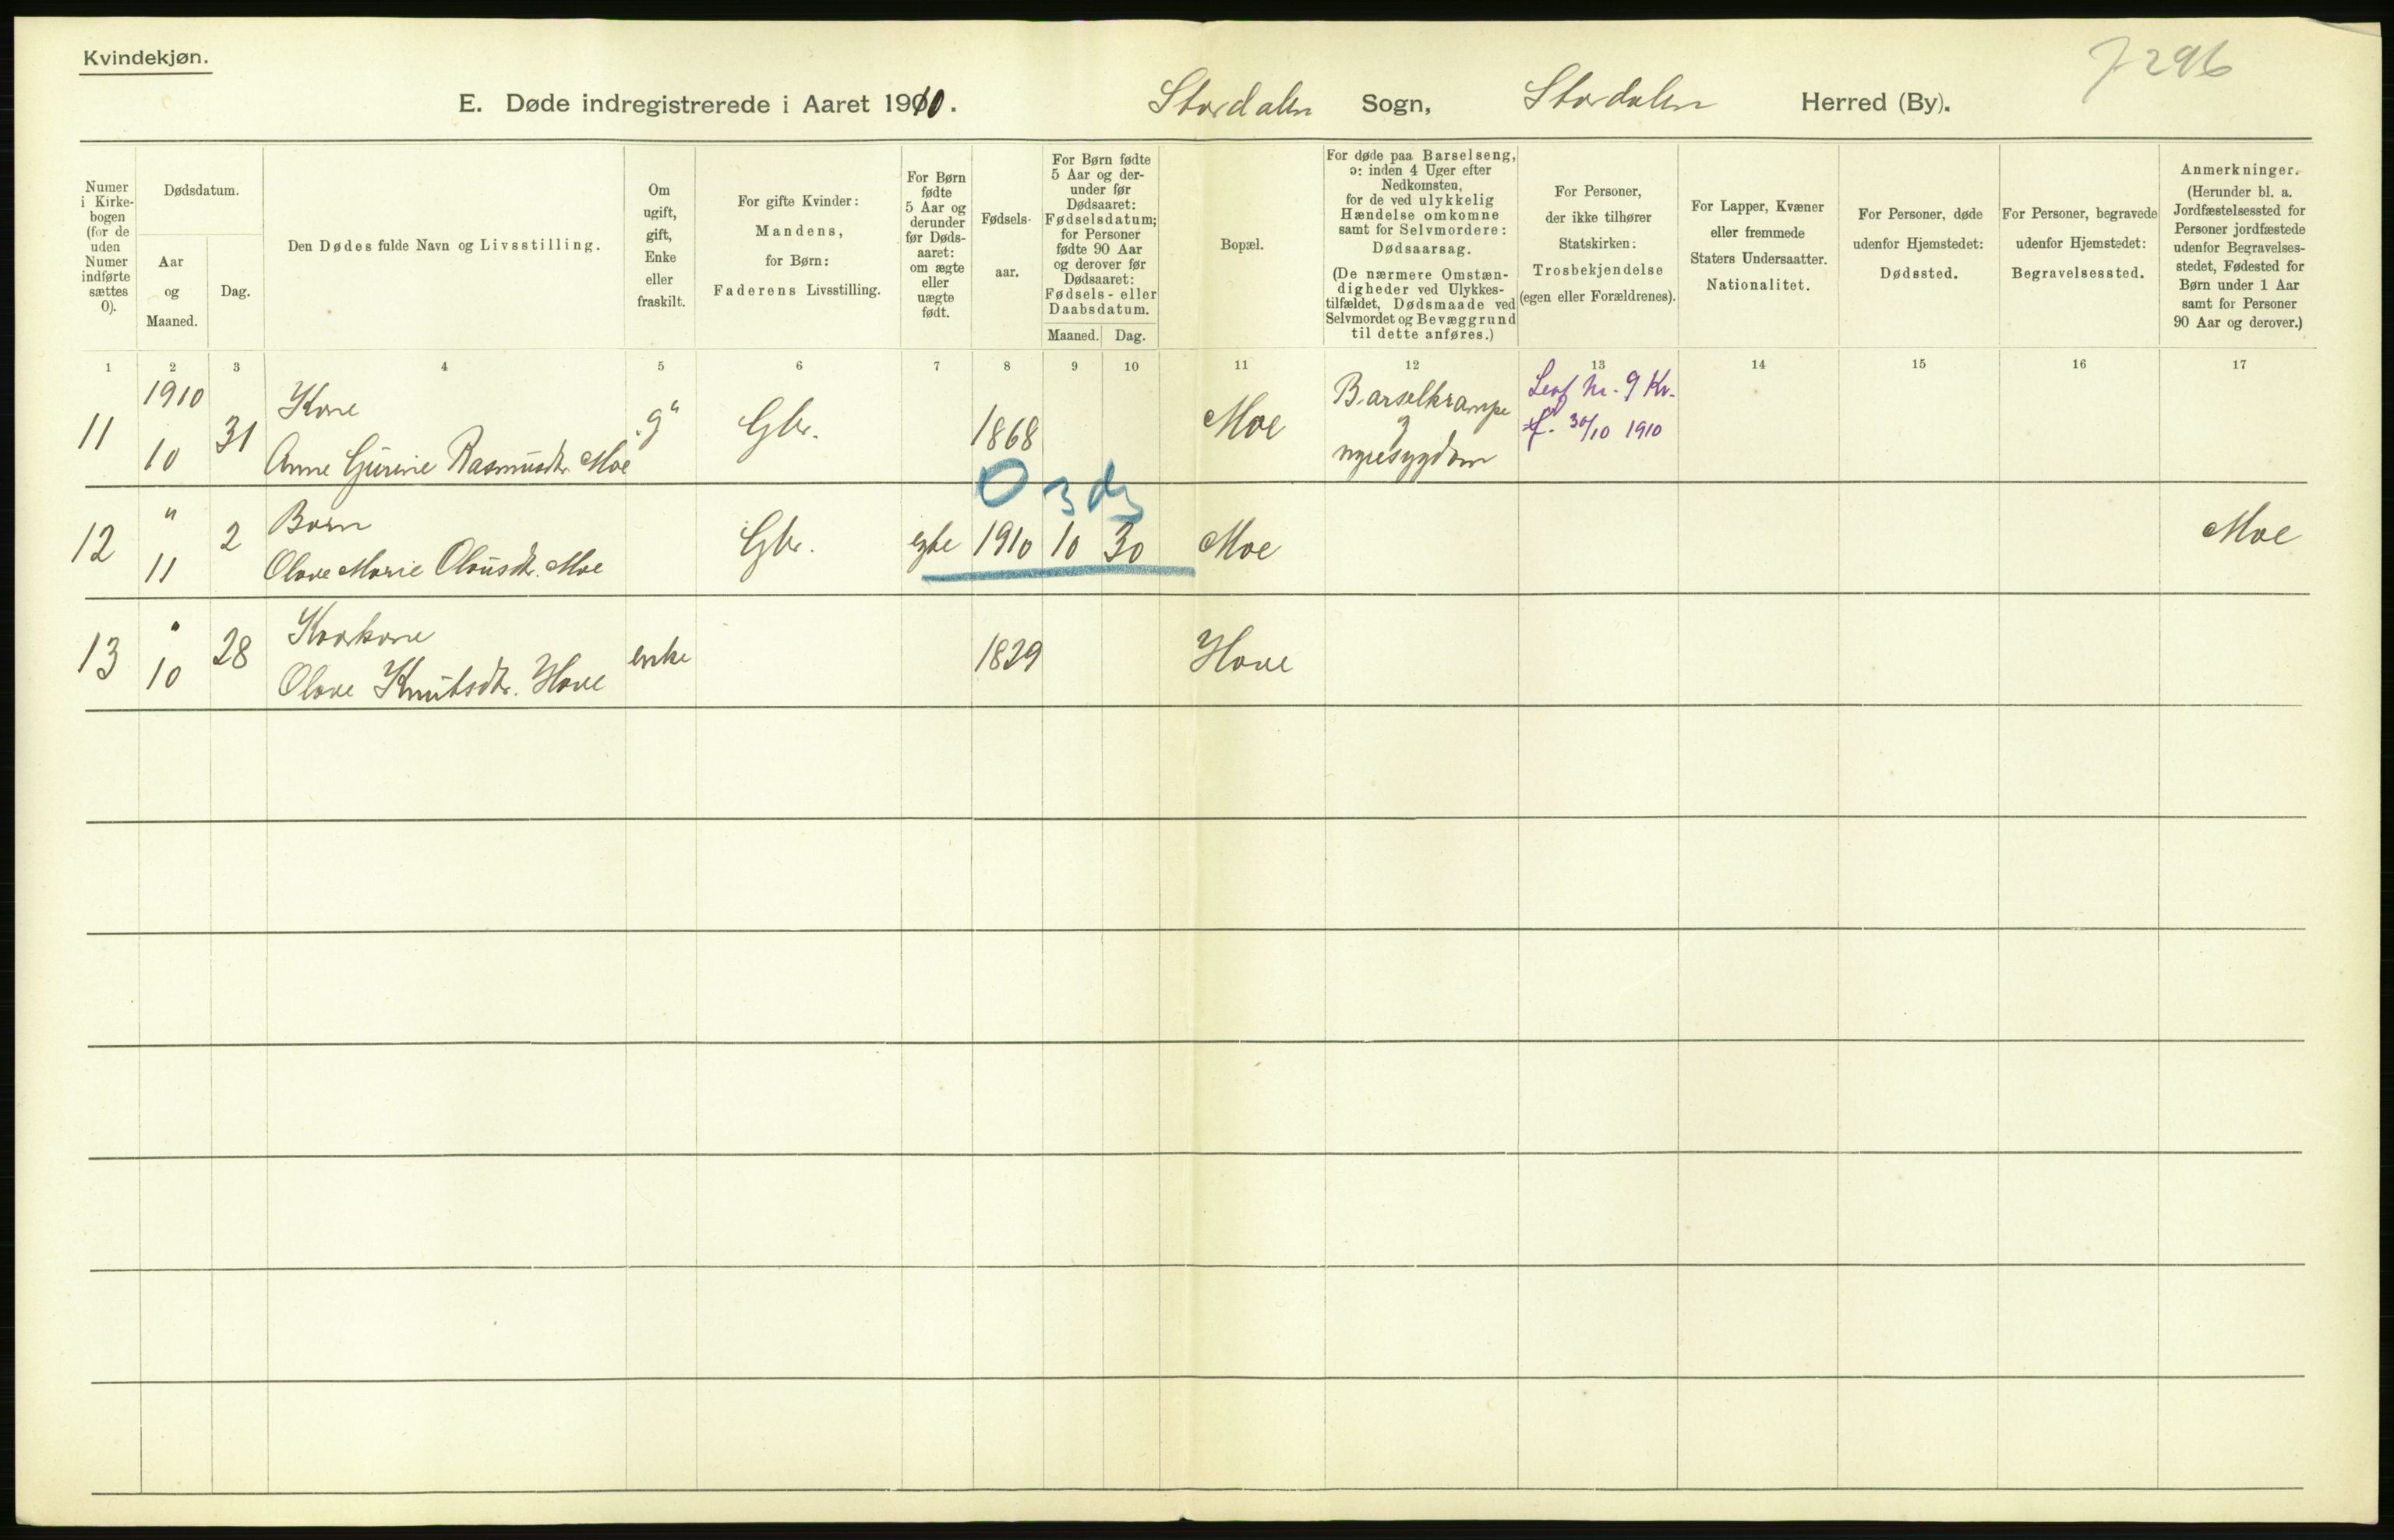 Kvindekjøn.
7296
E. Døde indregistrerede i Aaret 1910. Stordalen Sogn, Stordalen Herred (By).
Numer i Kirke-bogen (for de uden Numer indførte sættes 0).
Dødsdatum.
Aar og Maaned.
Dag.
Den Dødes fulde Navn og Livsstilling.
Om ugift, gift, Enke eller fraskilt.
For gifte Kvinder: Mandens, for Børn: Faderens Livsstilling.
For Børn fødte 5 Aar og derunder før Døds-aaret: om ægte eller uægte født.
Fødsels-aar.
For Børn fødte 5 Aar og der-under før Dødsaaret: Fødselsdatum; for Personer fødte 90 Aar og derover før Dødsaaret: Fødsels- eller Daabsdatum.
Maaned. Dag.
Bopæl.
For døde paa Barselseng, ɔ: inden 4 Uger efter Nedkomsten, for de ved ulykkelig Hændelse omkomne samt for Selvmordere: Dødsaarsag.
(De nærmere Omstæn-digheder ved Ulykkes-tilfældet, Dødsmaade ved Selvmordet og Bevæggrund til dette anføres.)
For Personer, der ikke tilhører Statskirken: Trosbekjendelse (egen eller Forældrenes).
For Lapper, Kvæner eller fremmede Staters Undersaatter. Nationalitet.
For Personer, døde udenfor Hjemstedet: Dødssted.
For Personer, begravede udenfor Hjemstedet: Begravelsessted.
Anmerkninger. (Herunder bl. a. Jordfæstelsessted for Personer jordfæstede udenfor Begravelses-stedet, Fødested for Børn under 1 Aar samt for Personer 90 Aar og derover.)
1 2 3 4 5 6 7 8 9 10 11 12 13 14 15 16 17
1910 Kone Barselkrampe Levf Nr. 9 Kv.
11 10 31 Anne Gurine Rasmusdtr. Moe "g" Gbr. 1868 Moe nyresygdom f. 30/10 1910
0 3 dg
" Barn
12 11 2 Olave Marie Olausdtr. Moe Gbr. egte 1910 10 30 Moe Moe
" Kaarkone
13 10 28 Olave Knutsdtr. Hove enke 1829 Hove